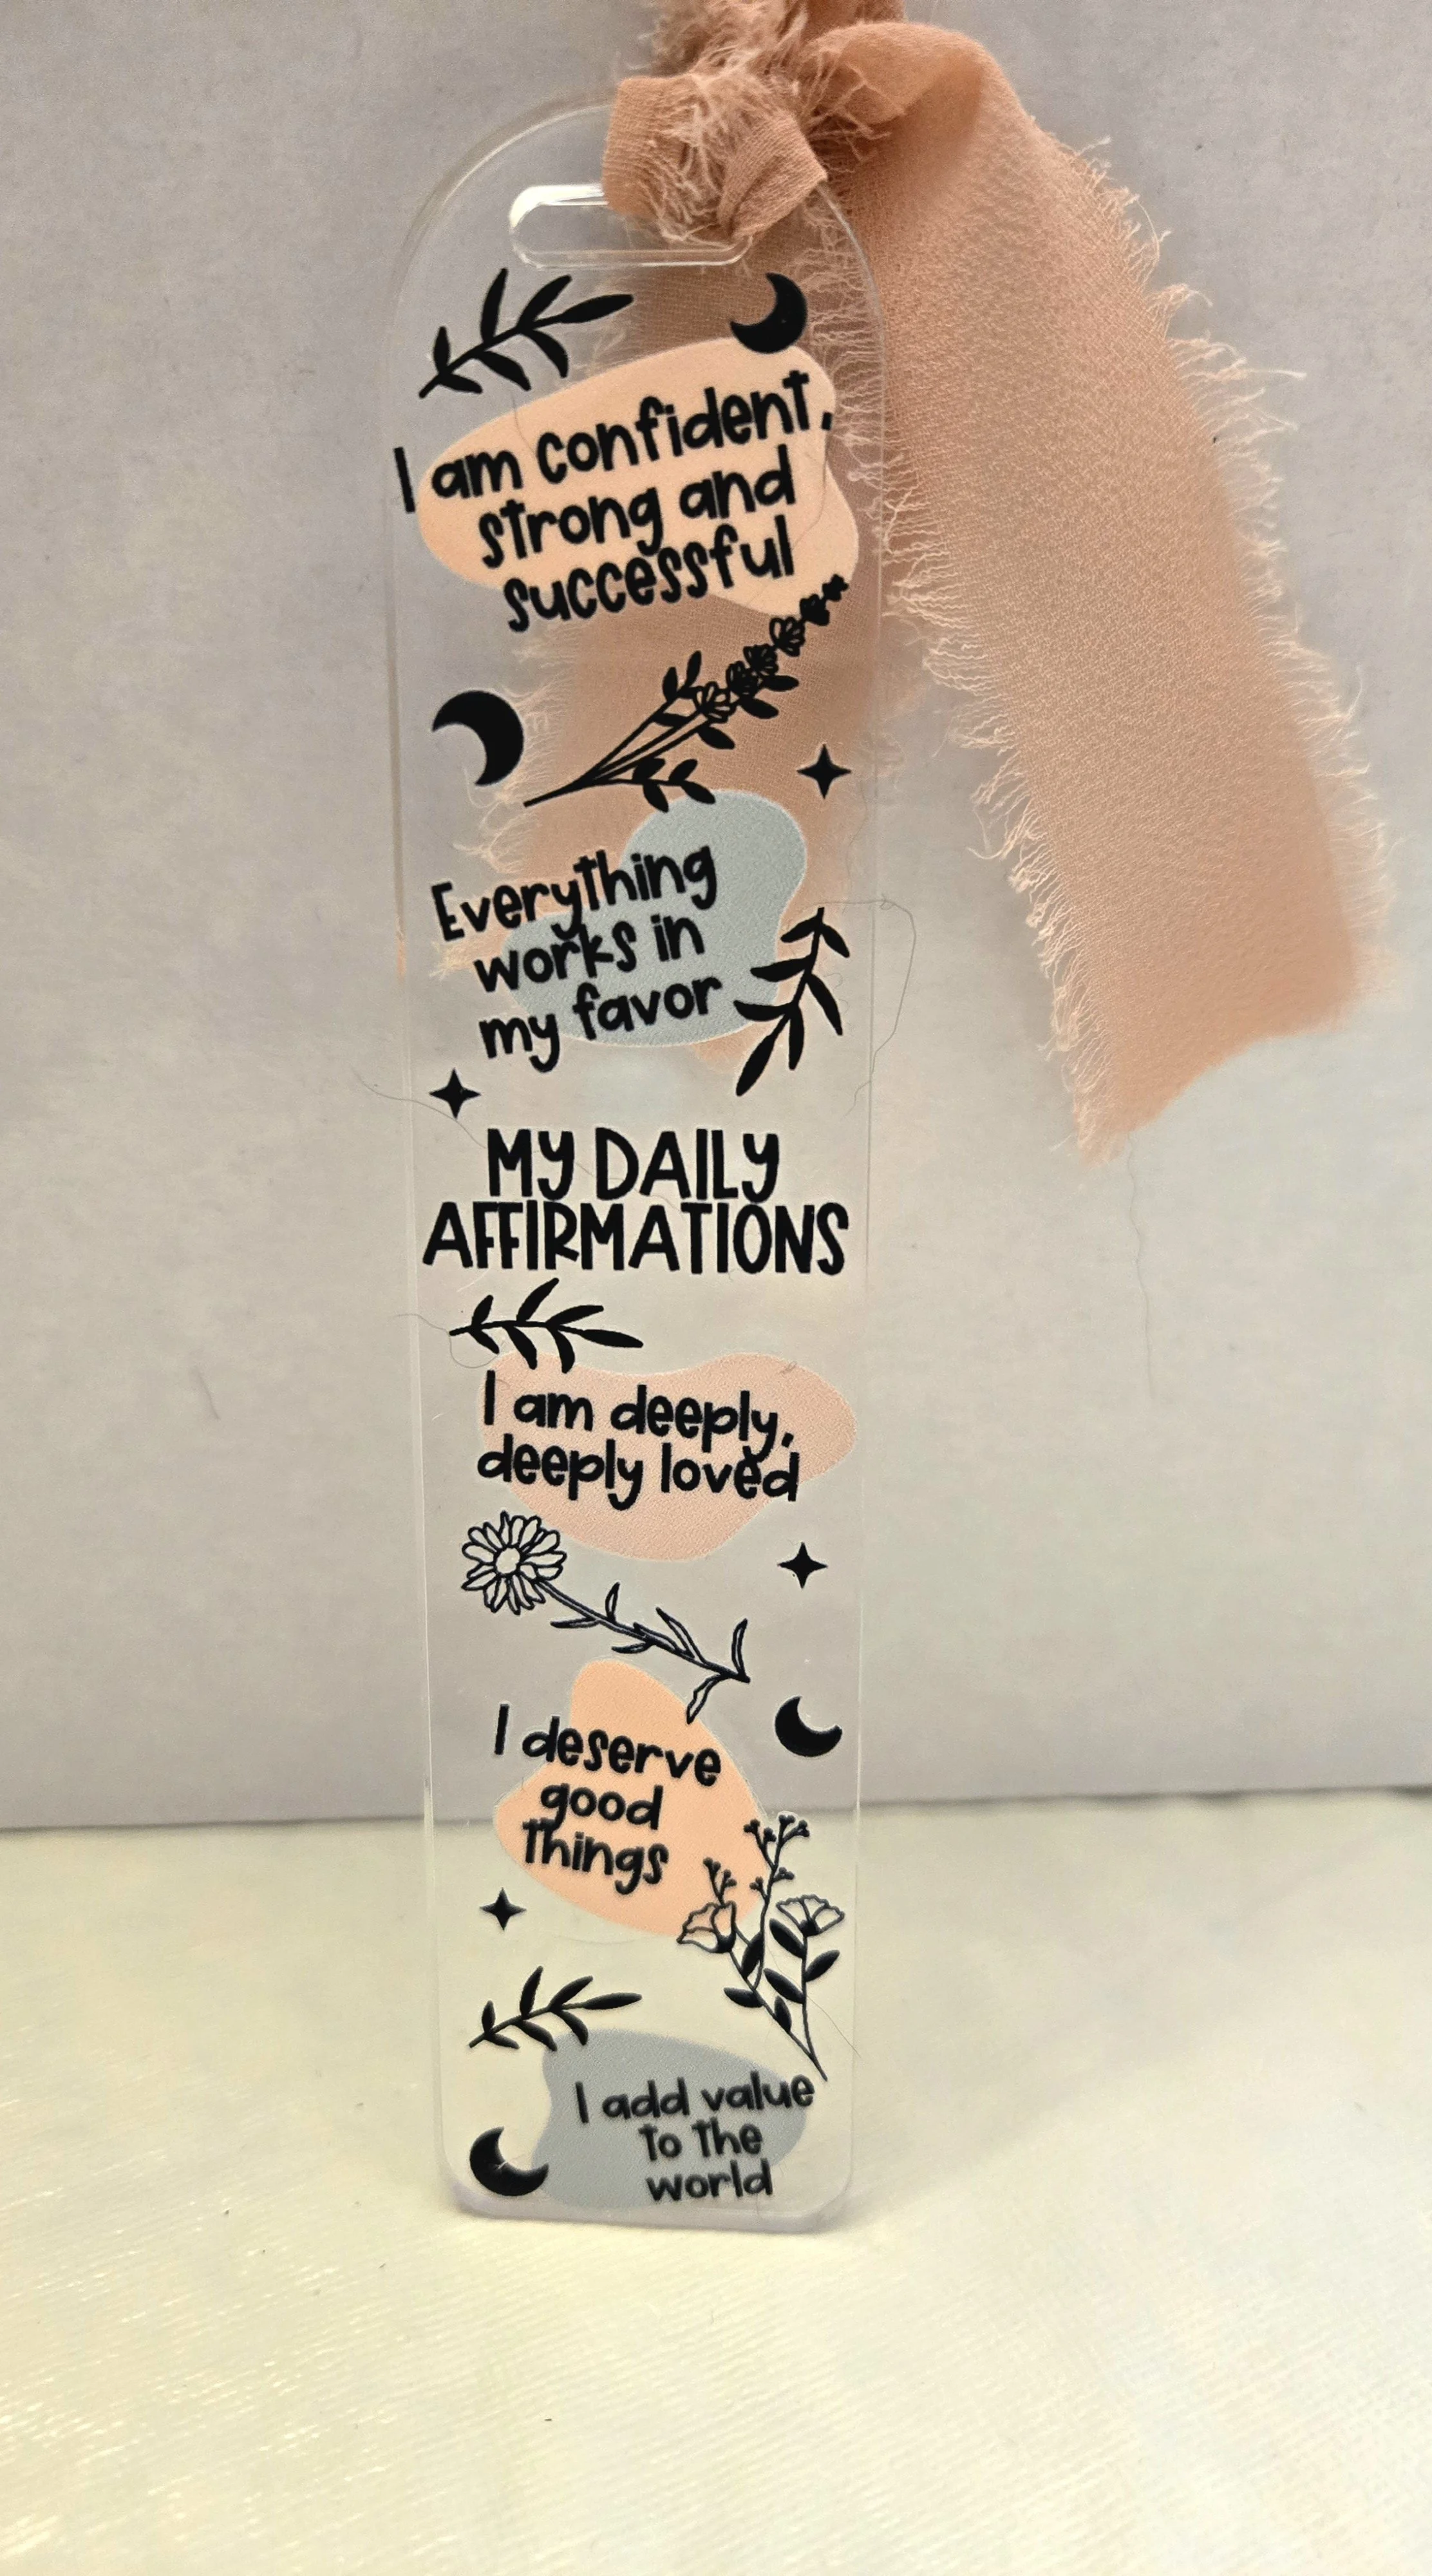 I am confident,
strong and
successful
Everything
works in
my favor
MY DAILY
AFFIRMATIONS
I am deeply,
deeply loved
I deserve
good
things
I add value
to the
world